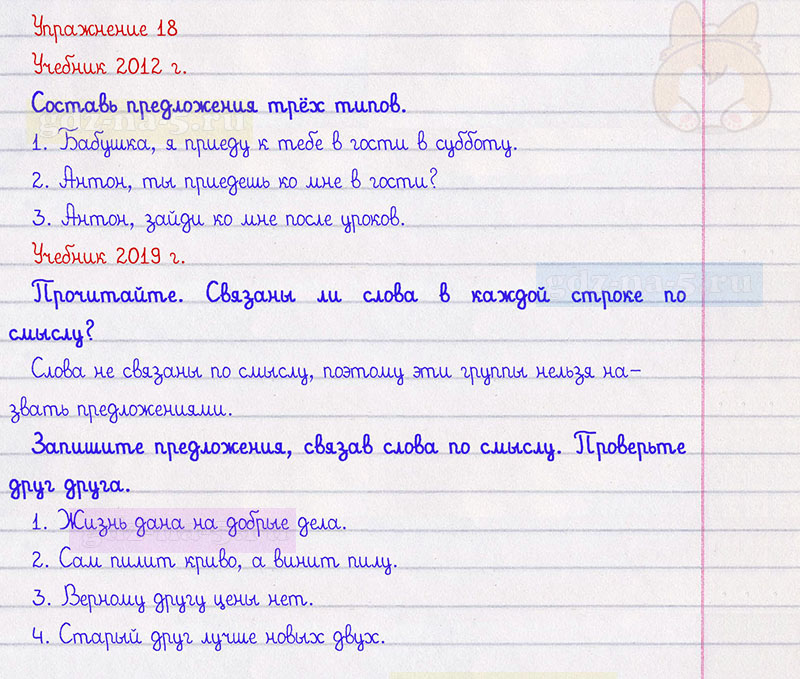 Упражнение 18
Учебник 2012 г.
Составь предложения трёх типов.
1. Бабушка, я приеду к тебе в гости в субботу.
2. Антон, ты приедешь ко мне в гости?
3. Антон, зайди ко мне после уроков.
Учебник 2019 г.
gdz-na-5.ru
Прочитайте. Связаны ли слова в каждой строке по
смыслу?
Слова не связаны по смыслу, поэтому эти группы нельзя на-
звать предложениями.
Запишите предложения, связав слова по смыслу. Проверьте
друг друга.
1. Жизнь дана на добрые дела.
2. Сам пилит криво, а винит пилу.
3. Верному другу цены нет.
4. Старый друг лучше новых двух.